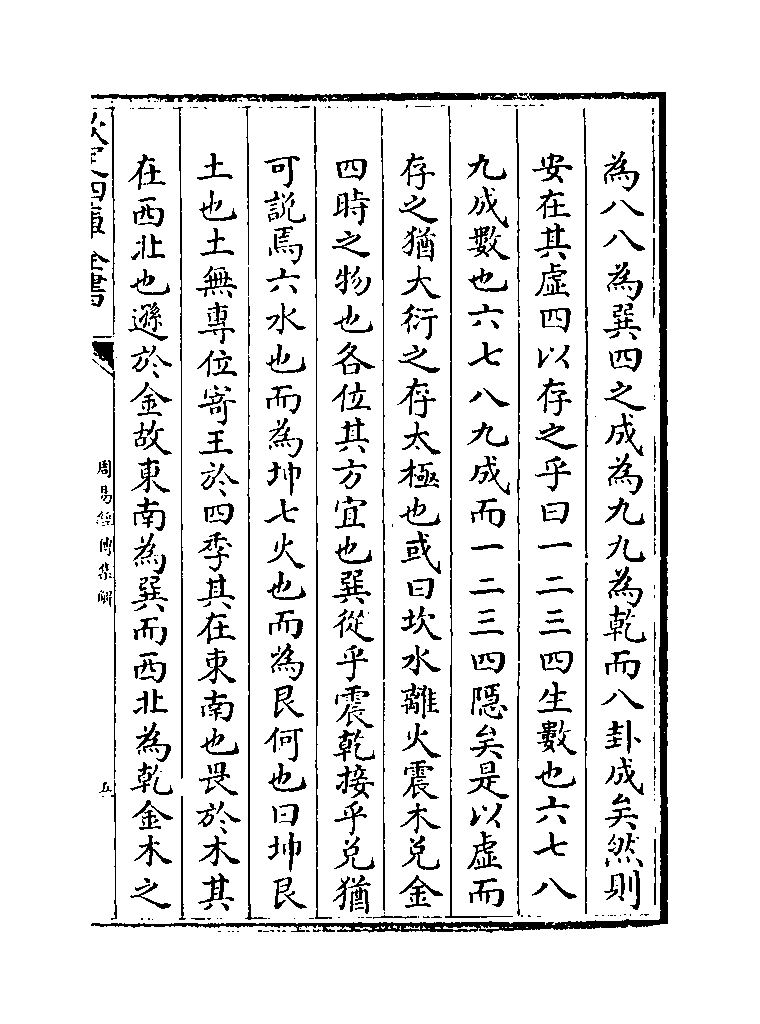 為八八為巽四之成為九九為乾而八卦成矣然則
安在其虛四以存之乎曰一二三四生數也六七八
九成數也六七八九成而一二三四隱矣是以虛而
存之猶大衍之存太極也或曰坎水離火震木兌金
四時之物也各位其方宜也巽從乎震乾接乎兌猶
可說焉六水也而為坤七火也而為艮何也曰坤艮
土也土無專位寄王於四季其在東南也畏於木其
在西北也遜於金故東南為巽而西北為乾金木之
欽定四庫全書
周易經傳集解
五